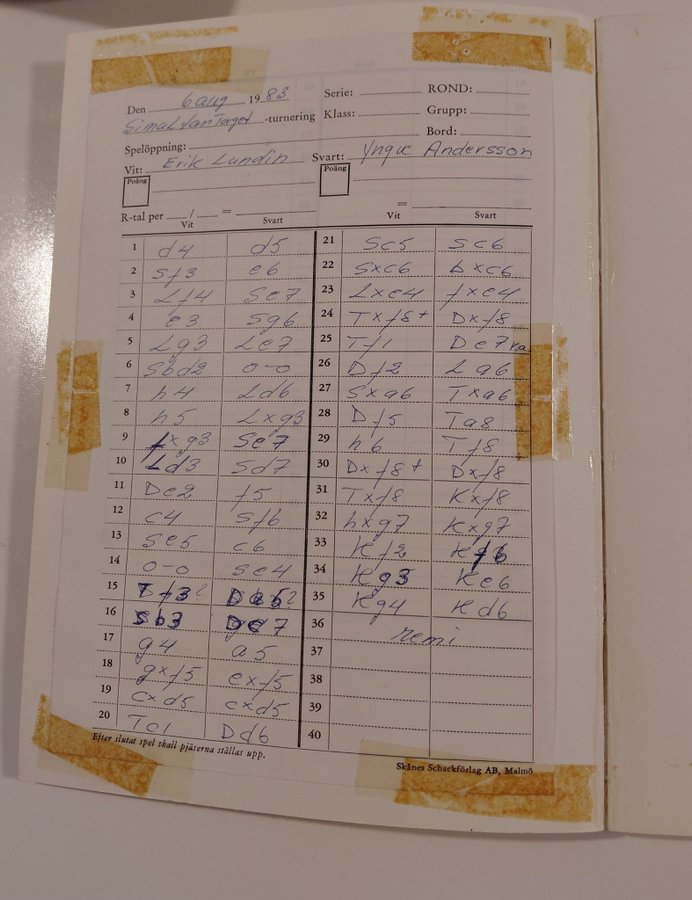 Den 6 aug 1983 Serie: ROND:
-turnering Klass: Grupp:
Spelöppning: Bord:
Vit: Erik Lundin Svart: Yngve Andersson
Poäng Poäng
R-tal per / = =
Vit Svart Vit Svart
1 d4 d5
2 Sf3 e6
3 Lf4 Se7
4 e3 Sg6
5 Lg3 Le7
6 Sbd2 0-0
7 h4 Ld6
8 h5 Lxg3
9 fxg3 Se7
10 Ld3 Sd7
11 De2 f5
12 c4 Sf6
13 Se5 c6
14 0-0 Se4
15 Tf3?
16 Sb3
17 g4 a5
18 gxf5 exf5
19 cxd5 cxd5
20 Tc1 Dd6
21 Sc5 Sc6
22 Sxc6 bxc6
23 Lxe4 fxe4
24 Txf8+ Dxf8
25 Tf1 De7 r.a.
26 Df2 La6
27 Sxa6 Txa6
28 Df5 Ta8
29 h6 Tf8
30 Dxf8+ Dxf8
31 Txf8 Kxf8
32 hxg7 Kxg7
33 Kf2 Kf6
34 Kg3 Ke6
35 Kg4 Kd6
36 remi
37
38
39
40
Efter slutat spel skall pjäserna ställas upp.
Skånes Schackförlag AB, Malmö